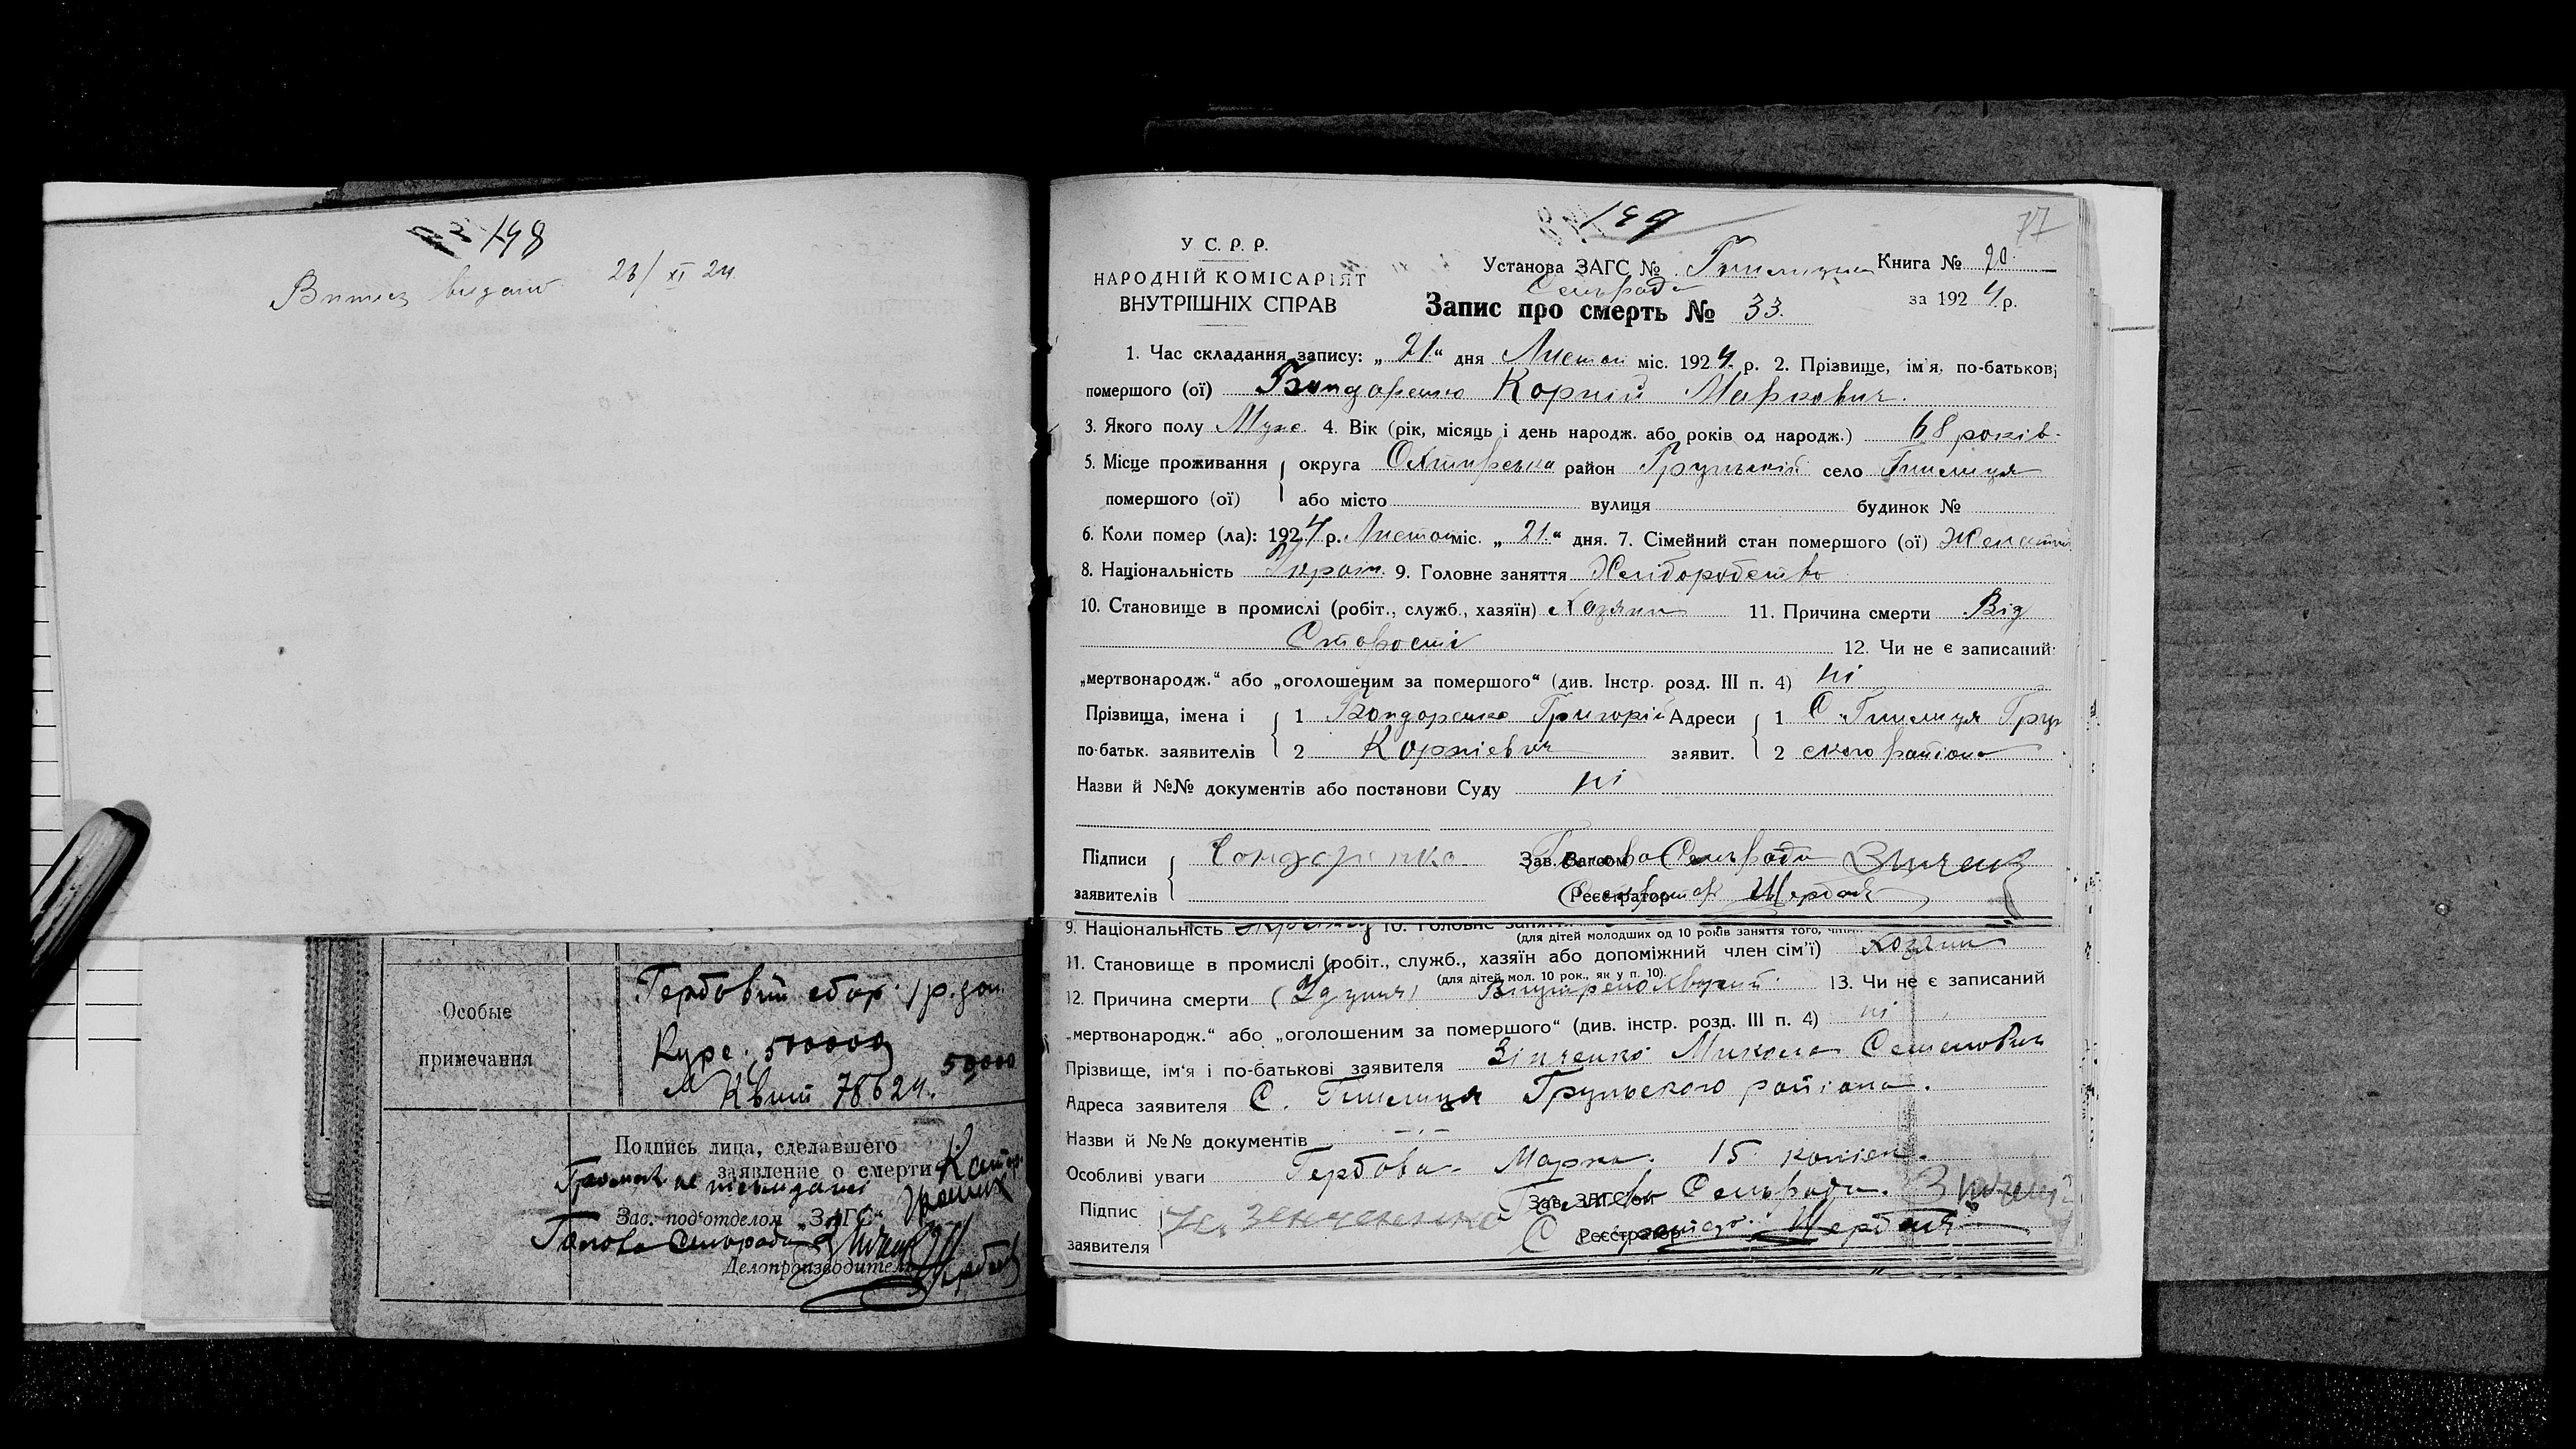 198
Витяг видано 26/XI 24
Особые
примечания
Гербовий сбор 1 р. зол.
Курс 500000
50,000
Квит 78624.
Подпись лица, сделавшего
заявление о смерти
Зав. под'отделом „ЗАГС“
Голова Сельради
Делопроизводитель
199
77
У С. Р. Р.
НАРОДНІЙ КОМІСАРІЯТ
ВНУТРІШНІХ СПРАВ
Установа ЗАГС № Гнилицька Книга № 20
Сельрада
Запис про смерть № 33. за 1924 р.
1. Час складання запису: „21“ дня Листоп міс. 1924 р. 2. Прізвище, ім'я, по-батькові
помершого (ої) Бондаренко Корній Маркович.
3. Якого полу Муже 4. Вік (рік, місяць і день народж. або років од народж.) 68 років.
5. Місце проживання округа Охтирська район Грунський село Гнилиця
помершого (ої) або місто вулиця будинок №
6. Коли помер (ла): 1924 р. Листоп міс. „21“ дня. 7. Сімейний стан помершого (ої) Женатий
8. Національність Украін. 9. Головне заняття Хлібородство
10. Становище в промислі (робіт., служб., хазяїн) Хазяин 11. Причина смерти Від
Старості 12. Чи не є записаний
„мертвонародж.“ або „оголошеним за помершого“ (див. Інстр. розд. III п. 4) ні
Прізвища, імена і 1 Бондаренко Григорій Адреси 1 С. Гнилиця Грун
по-батьк. заявителів 2 Корнієвич заявит. 2 ского района
Назви й №№ документів або постанови Суду ні
Підписи Бондаренко Зав. Загсом Голова Сельради
заявителів Реєстратор Секретар Щербак
9. Національність 10. Головне заняття
(для дітей молодших од 10 років заняття того,
11. Становище в промислі (робіт., служб., хазяїн або допоміжний член сім'ї) Хозяин
(для дітей мол. 10 рок., як у п. 10).
12. Причина смерти 13. Чи не є записаний
„мертвонародж.“ або „оголошеним за помершого“ (див. інстр. розд. III п. 4) ні
Прізвище, ім'я і по-батькові заявителя Зінченко Микола Семенович
Адреса заявителя С. Гнилиця Грунського района.
Назви й №№ документів
Особливі уваги Гербова Марка 15 копієк.
Підпис Зав. ЗАГС'ом Голова Сельради.
заявителя Реєстратор Щербак